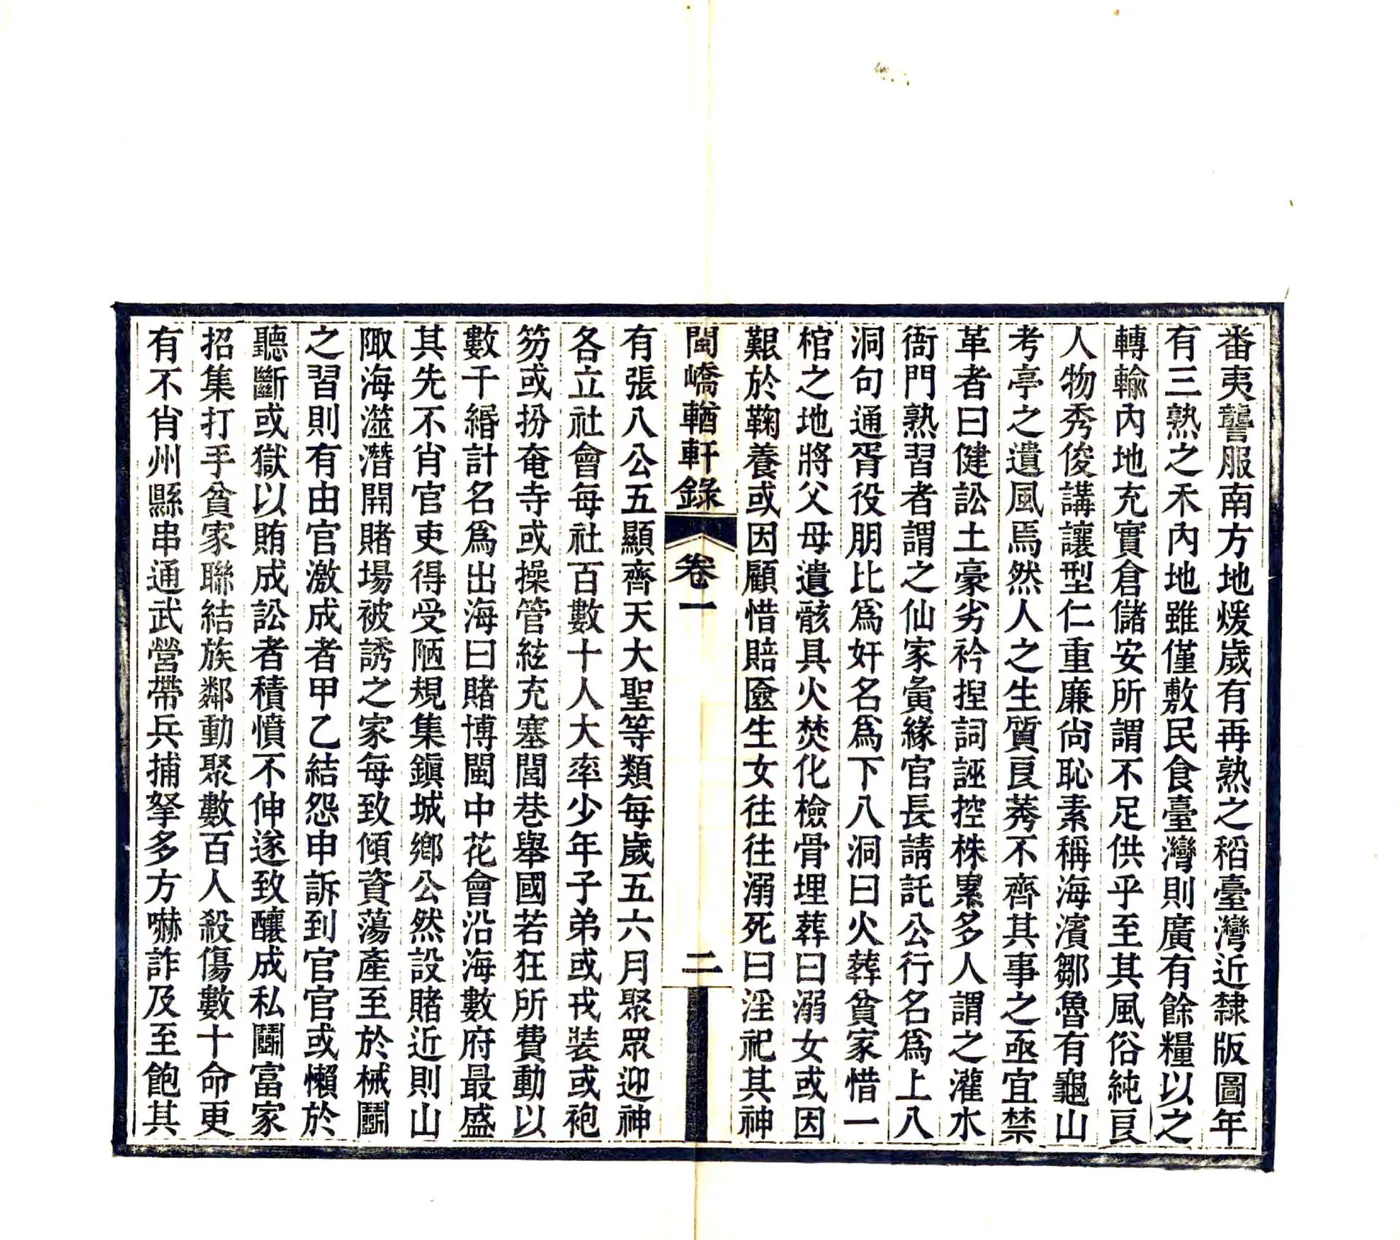 番夷讋服南方地煖歲有再熟之稻臺灣近隸版圖年
有三熟之禾內地雖僅敷民食臺灣則廣有餘糧以之
轉輸內地充實倉儲安所謂不足供乎至其風俗純良
人物秀俊講讓型仁重廉尙恥素稱海濱鄒魯有龜山
考亭之遺風焉然人之生質良莠不齊其事之亟宜禁
革者曰健訟土豪劣衿捏詞誣控株累多人謂之灌水
衙門熟習者謂之仙家夤緣官長請託公行名爲上八
洞句通胥役朋比爲奸名爲下八洞曰火葬貧家惜一
棺之地將父母遺骸具火焚化檢骨埋葬曰溺女或因
艱於鞠養或因顧惜賠匳生女往往溺死曰淫祀其神
閩嶠輶軒錄 卷一 二
有張八公五顯齊天大聖等類每歲五六月聚眾迎神
各立社會每社百數十人大率少年子弟或戎裝或袍
笏或扮奄寺或操管絃充塞閭巷舉國若狂所費動以
數千緡計名爲出海曰賭博閩中花會沿海數府最盛
其先不肖官吏得受陋規集鎭城鄉公然設賭近則山
陬海澨潛開賭場被誘之家每致傾資蕩產至於械鬭
之習則有由官激成者甲乙結怨申訴到官官或懶於
聽斷或獄以賄成訟者積憤不伸遂致釀成私鬭富家
招集打手貧家聯結族鄰動聚數百人殺傷數十命更
有不肖州縣串通武營帶兵捕拏多方嚇詐及至飽其